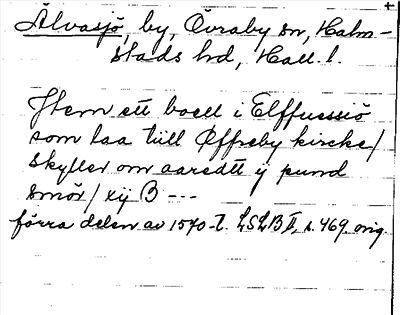 Älvasjö, by, Övraby sn, Halm-
stads hd, Hall. l.
Jtem ett boell i Elffuessiö
som laa tiill Øffreby kircke/
skyller om aaredtt ij pund
smör/ xij B ---
förra delen av 1570-t. LSLB II, s. 469. orig.